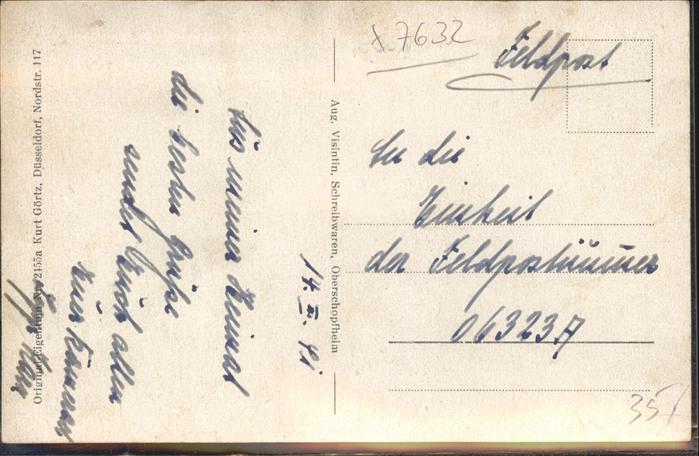 x 7632
Feldpost
An die
Einheit
der Feldpostnummer
06323 A
35
14. II. 41
Aus meiner Heimat
die besten Grüße
sendet Euch allen
Euer Kamerad
Aug. Visintin, Schreibwaren, Oberschopfheim
Original-Eigentum Nr. 2455a Kurt Görtz, Düsseldorf, Nordstr. 117